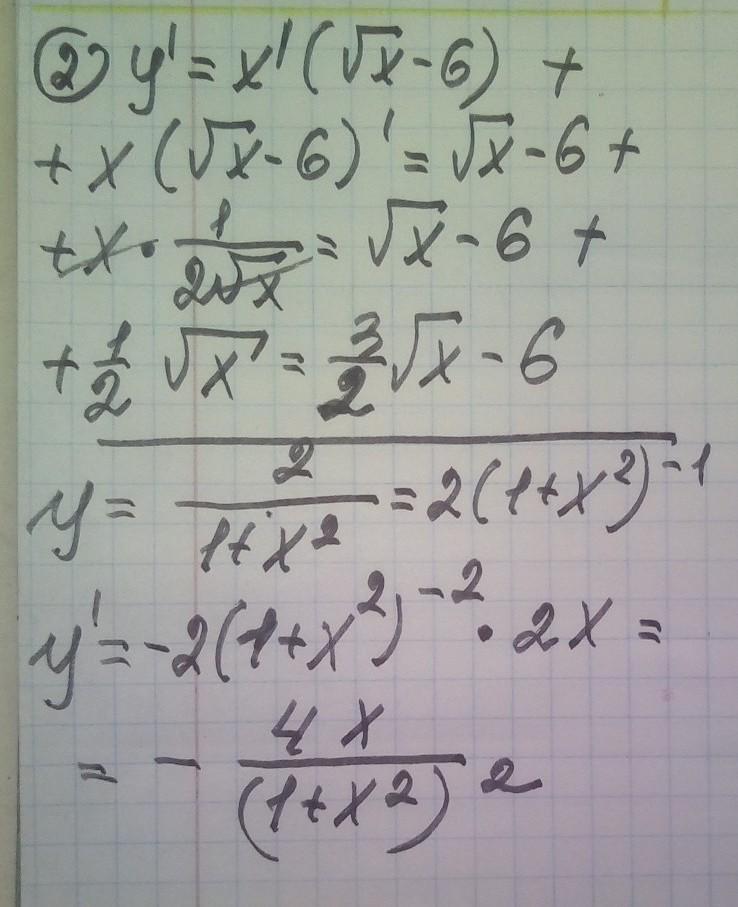 ② y' = x'(√x - 6) +
+ x(√x - 6)' = √x - 6 +
+ x · 1/(2√x) = √x - 6 +
+ 1/2 √x = 3/2 √x - 6
y = 2/(1 + x²) = 2(1 + x²)⁻¹
y' = -2(1 + x²)⁻² · 2x =
= - 4x/(1 + x²)²